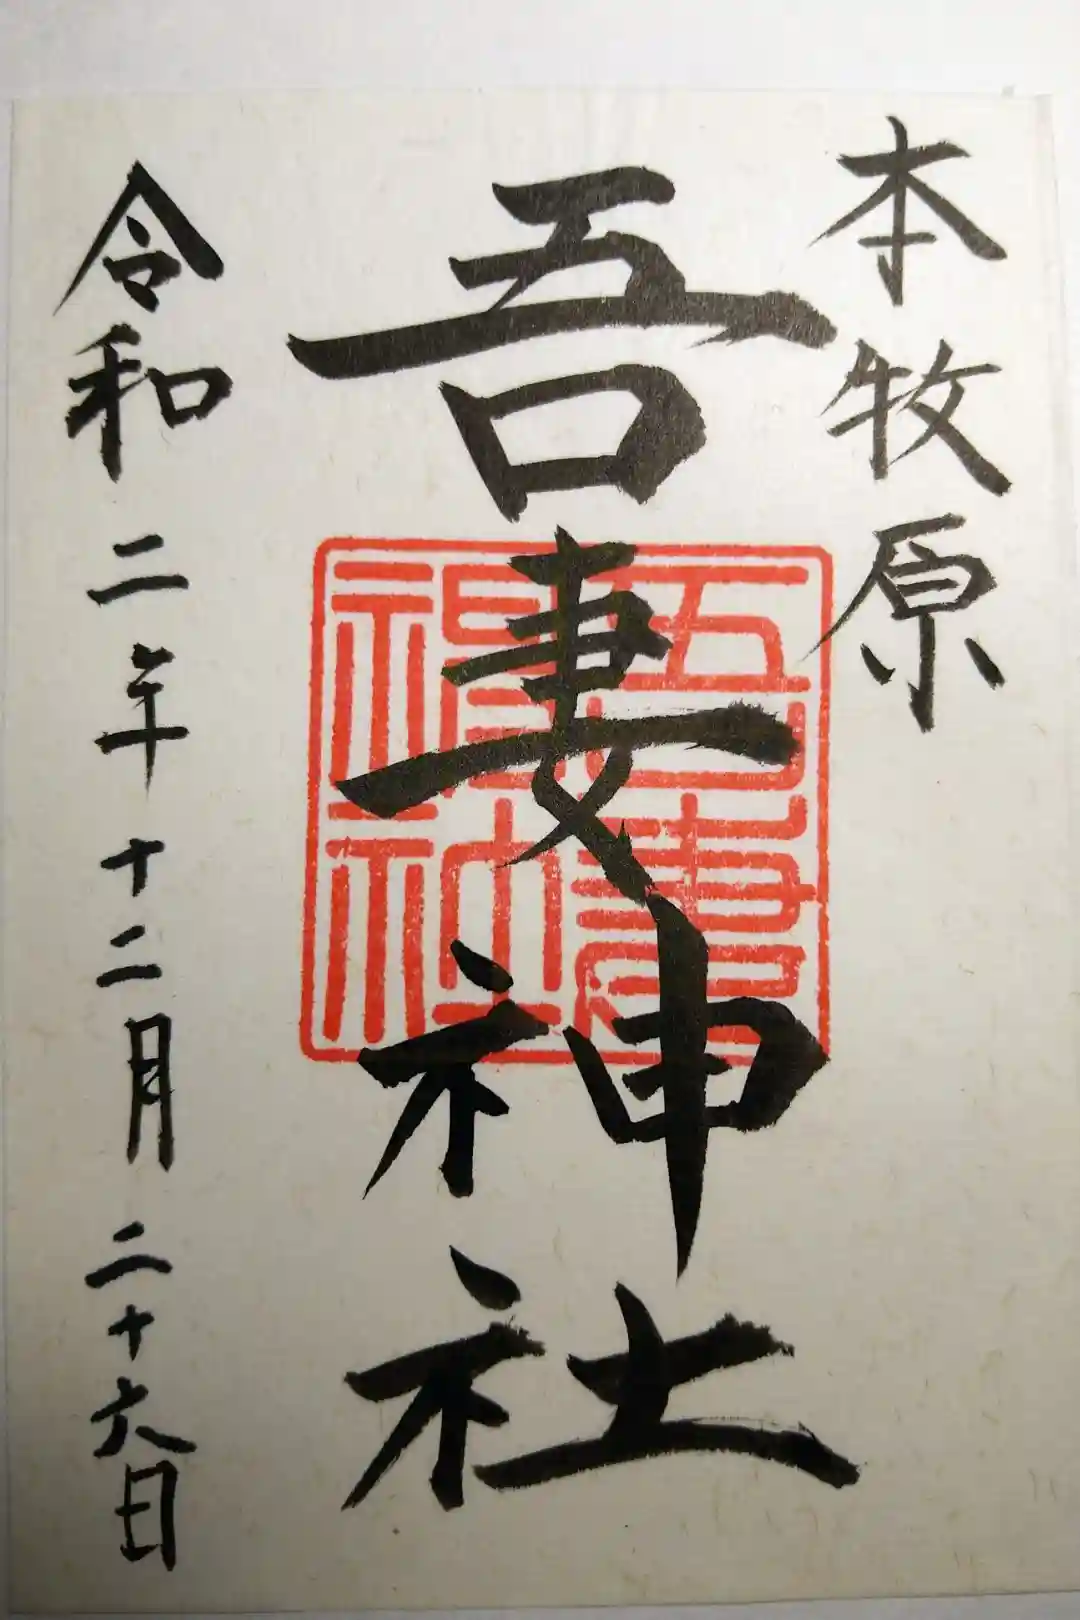 本牧原
吾妻神社
吾妻
神社
令和二年十二月二十六日